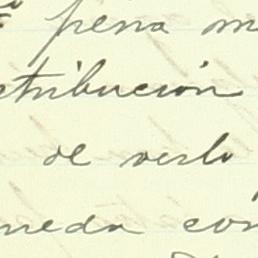 pena m
tribución
de verlo
neda con